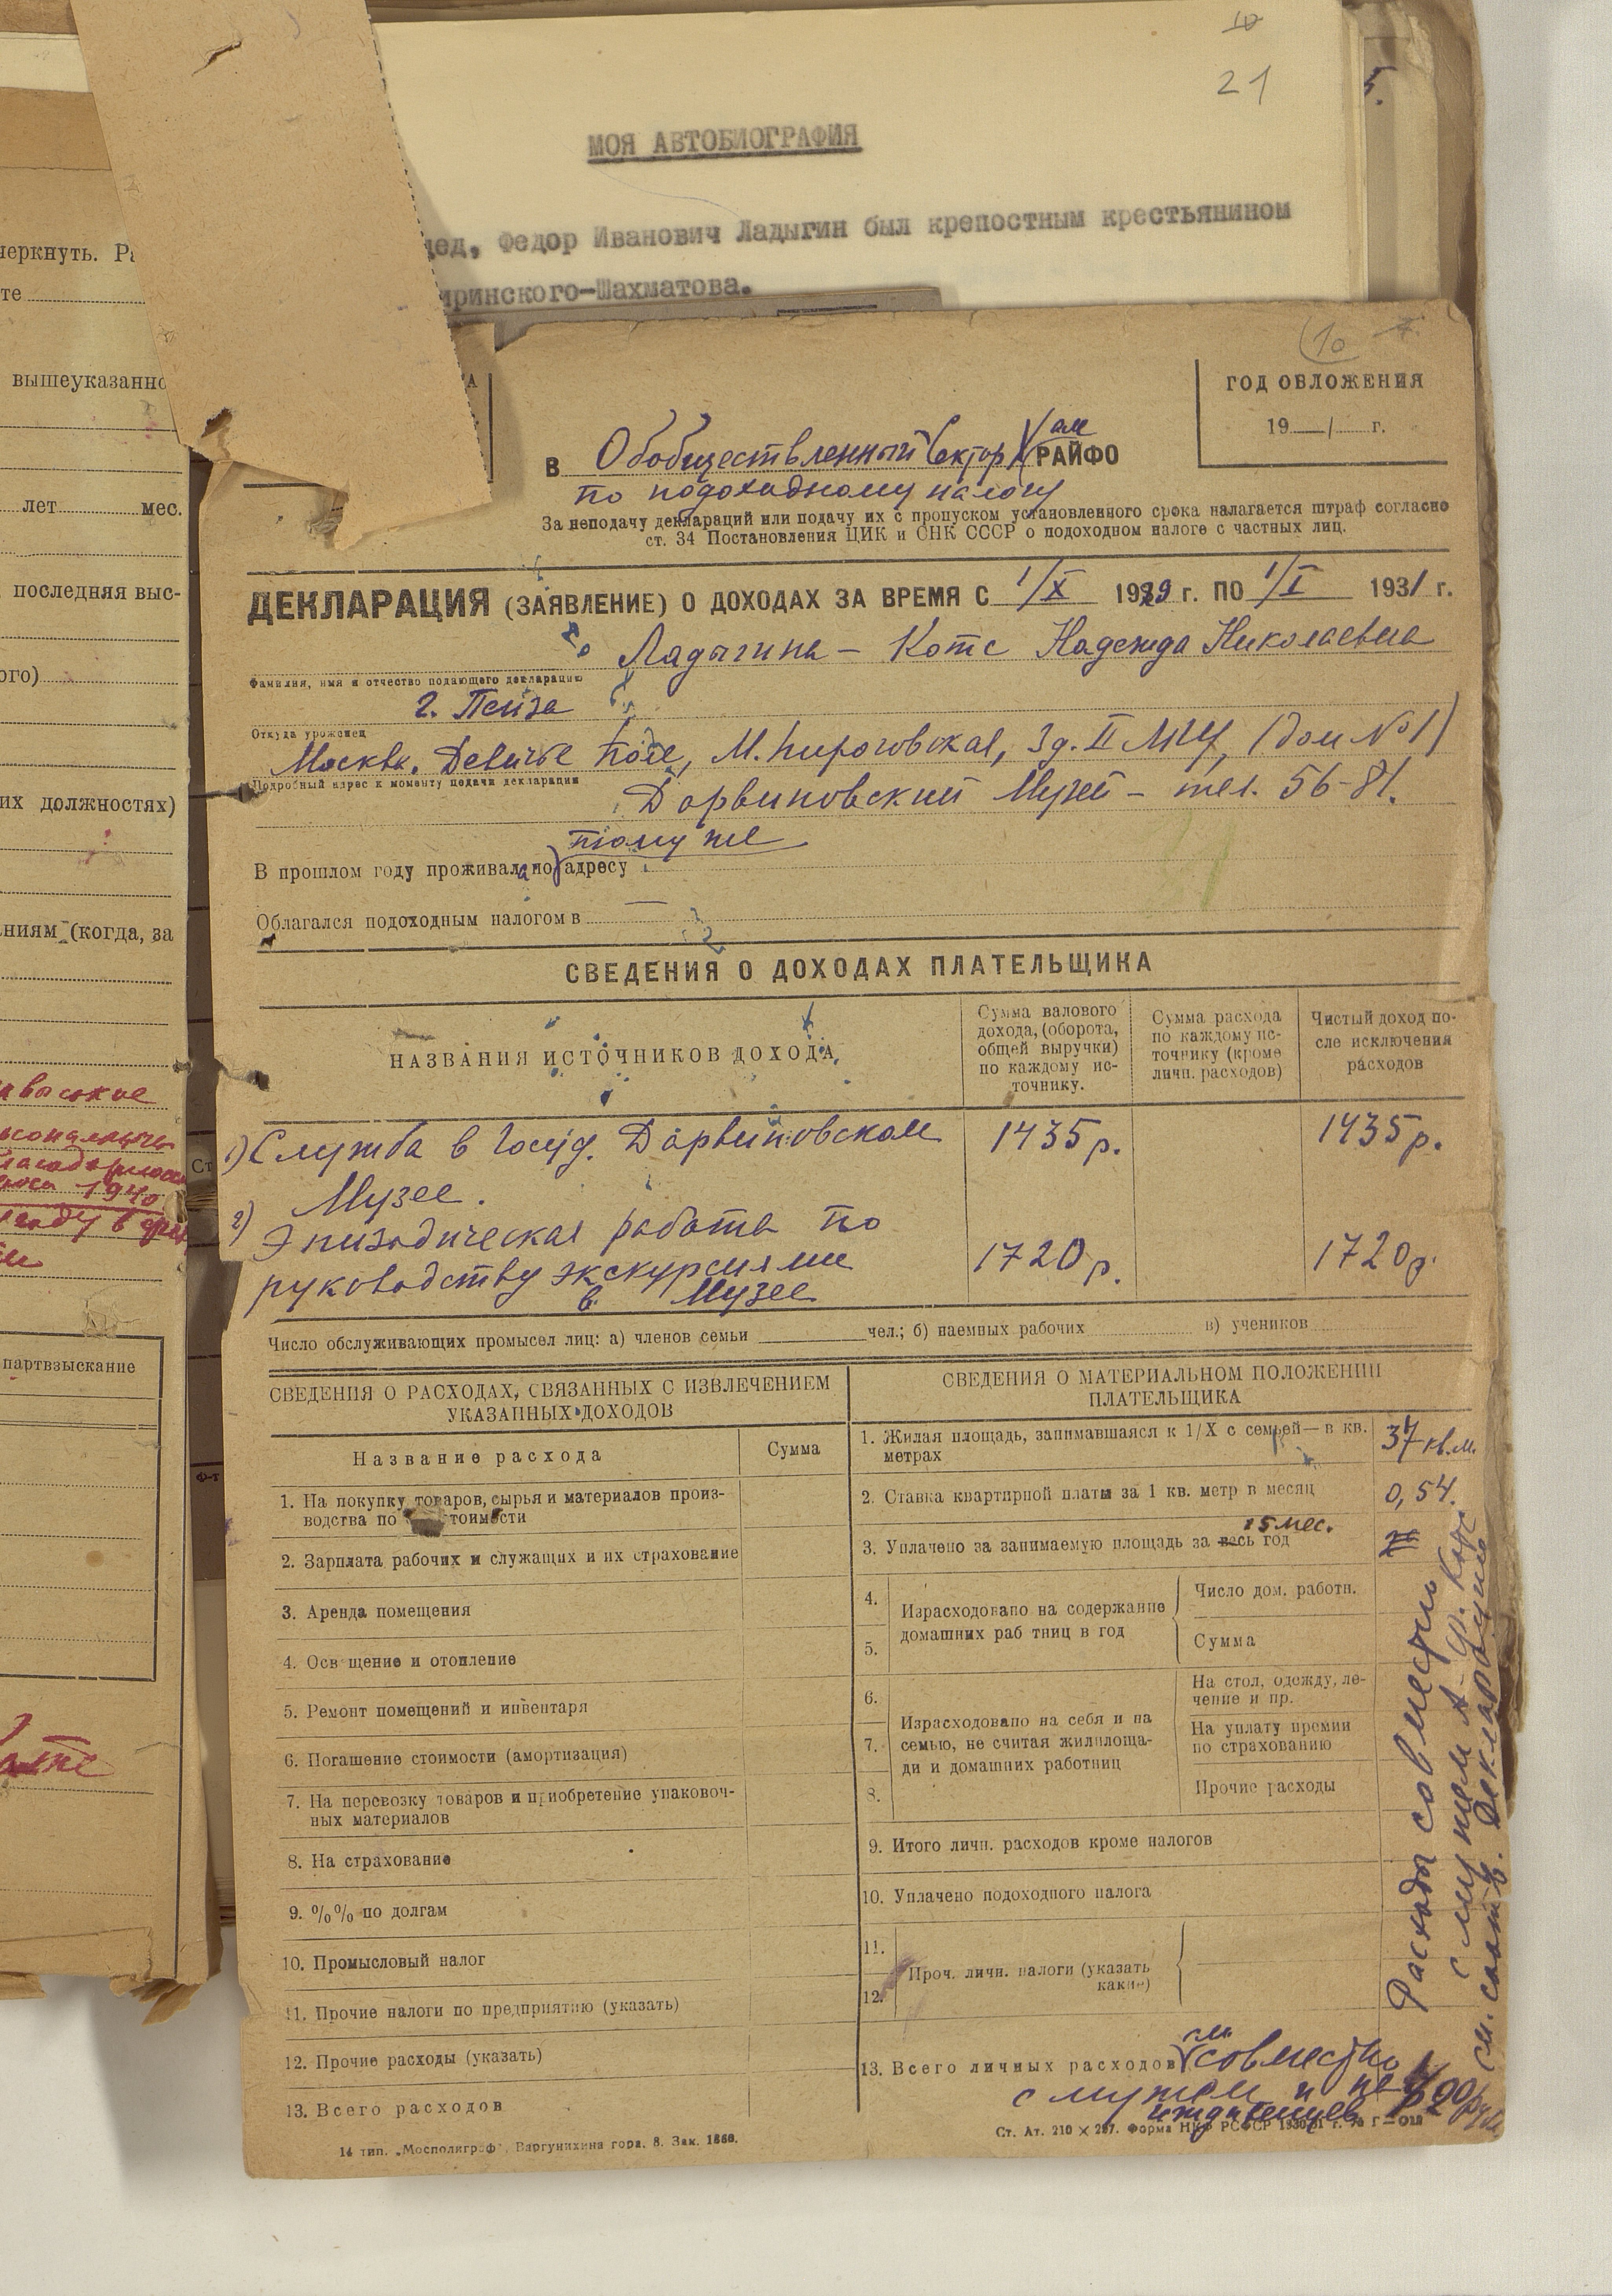 10
21
5.
МОЯ АВТОБИОГРАФИЯ
дед, Федор Иванович Ладыгин был крепостным крестьянином
иринского-Шахматова.
черкнуть.
те
вышеуказанно
лет мес.
последняя выс-
ого)
их должностях)
ниям (когда, за
1940
партвзыскание
10
ГОД ОБЛОЖЕНИЯ
19 / г.
В Обобществленный Сектор РАЙФО
по подоходному налогу
За неподачу деклараций или подачу их с пропуском установленного срока налагается штраф согласно
ст. 34 Постановления ЦИК и СНК СССР о подоходном налоге с частных лиц.
ДЕКЛАРАЦИЯ (ЗАЯВЛЕНИЕ) О ДОХОДАХ ЗА ВРЕМЯ С 1/X 1929 г. ПО 1/I 1931 г.
Ладыгина – Котс Надежда Николаевна
Фамилия, имя и отчество подающего декларацию
г. Пенза
Откуда уроженец
Москва. Девичье Поле, М. Пироговская, Зд. II МГУ, (дом № 1)
Подробный адрес к моменту подачи декларации
Дарвиновский Музей – тел. 56-81.
тому же
В прошлом году проживала по адресу
Облагался подоходным налогом в —
СВЕДЕНИЯ О ДОХОДАХ ПЛАТЕЛЬЩИКА
НАЗВАНИЯ ИСТОЧНИКОВ ДОХОДА
Сумма валового
дохода, (оборота,
общей выручки)
по каждому ис-
точнику.
Сумма расхода
по каждому ис-
точнику (кроме
личн. расходов)
Чистый доход по-
сле исключения
расходов
1) Служба в Госуд. Дарвиновском 1435 р. 1435 р.
Музее.
2) Эпизодическая работа по
руководству экскурсиями 1720 р. 1720 р.
в Музее
Число обслуживающих промысел лиц: а) членов семьи чел.; б) наемных рабочих в) учеников
СВЕДЕНИЯ О РАСХОДАХ, СВЯЗАННЫХ С ИЗВЛЕЧЕНИЕМ
УКАЗАННЫХ ДОХОДОВ
Название расхода Сумма
1. На покупку товаров, сырья и материалов произ-
водства по стоимости
2. Зарплата рабочих и служащих и их страхование
3. Аренда помещения
4. Осв щение и отопление
5. Ремонт помещений и инвентаря
6. Погашение стоимости (амортизация)
7. На перевозку товаров и приобретение упаковоч-
ных материалов
8. На страхование
9. %% по долгам
10. Промысловый налог
11. Прочие налоги по предприятию (указать)
12. Прочие расходы (указать)
13. Всего расходов
СВЕДЕНИЯ О МАТЕРИАЛЬНОМ ПОЛОЖЕНИИ
ПЛАТЕЛЬЩИКА
1. Жилая площадь, занимавшаяся к 1/X с семьей — в кв.
метрах
37 кв.м.
2. Ставка квартирной платы за 1 кв. метр в месяц 0,54.
15 мес.
3. Уплачено за занимаемую площадь за весь год
4.
5.
Израсходовано на содержание
домашних раб тниц в год
Число дом. работн.
Сумма
6.
7.
8.
Израсходовано на себя и на
семью, не считая жилплоща-
ди и домашних работниц
На стол, одежду, ле-
чение и пр.
На уплату премии
по страхованию
Прочие расходы
9. Итого личн. расходов кроме налогов
10. Уплачено подоходного налога
11.
12.
Проч. личн. налоги (указать
какие)
Расходы совместно
с мужем А. Ф. Котс
см. соотв. декларацию
13. Всего личных расходов совместно
с мужем и
иждивенцев
14 тип. „Мосполиграф", Варгунихина гора, 8. Зак. 1860.
Ст. Ат. 210 × 297. Форма НКФ РСФСР 1930/31 г.